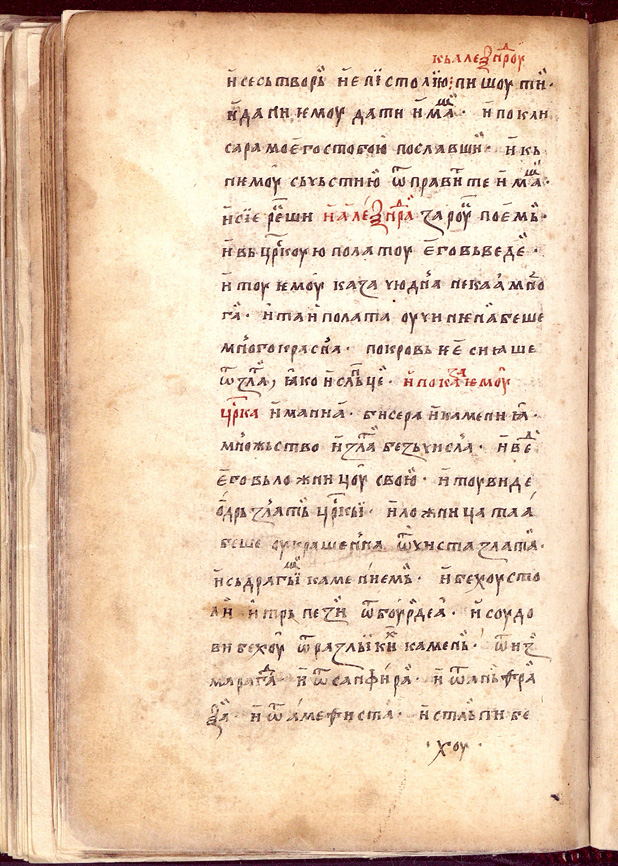 къ алеѯндроу
и сесь творꙋ и епїстолїю: пишоу ти
и дани ѥмоу дати имашь · и по кли
сара моего с тобою пославши · и къ
немоу съ чьстию ѿправите имашь
и сїе рекши и алеѯндра за роукоу поемь ·
и вь црьскоую полатоу его вьведе ·
и тоу ѥмоу каза чюдна нека а мно
га · и та полата оучинена беше
много красна · покровь ѥе сиꙗше
ѿ злата, ꙗко и слнце · и показа ѥмоу
црска иманиа · бисера и камениꙗ ·
множьство и злата безь числа · и веде
его вь ложницоу свою · и тоу виде
одрь злать црьскыи · и ложница та
беше оукрашенна ѿ чиста злата ·
и сь драгыимь каменїемь · и бехоу сто
ли и трьпези ѿ боурдеа · и соудо
ви бехоу ѿ различкы камень · ѿ из
марагда · и ѿ санфира · и ѿ аньѳра
ѯа · и ѿ амефиста · и стльпи бе
· хоу ·